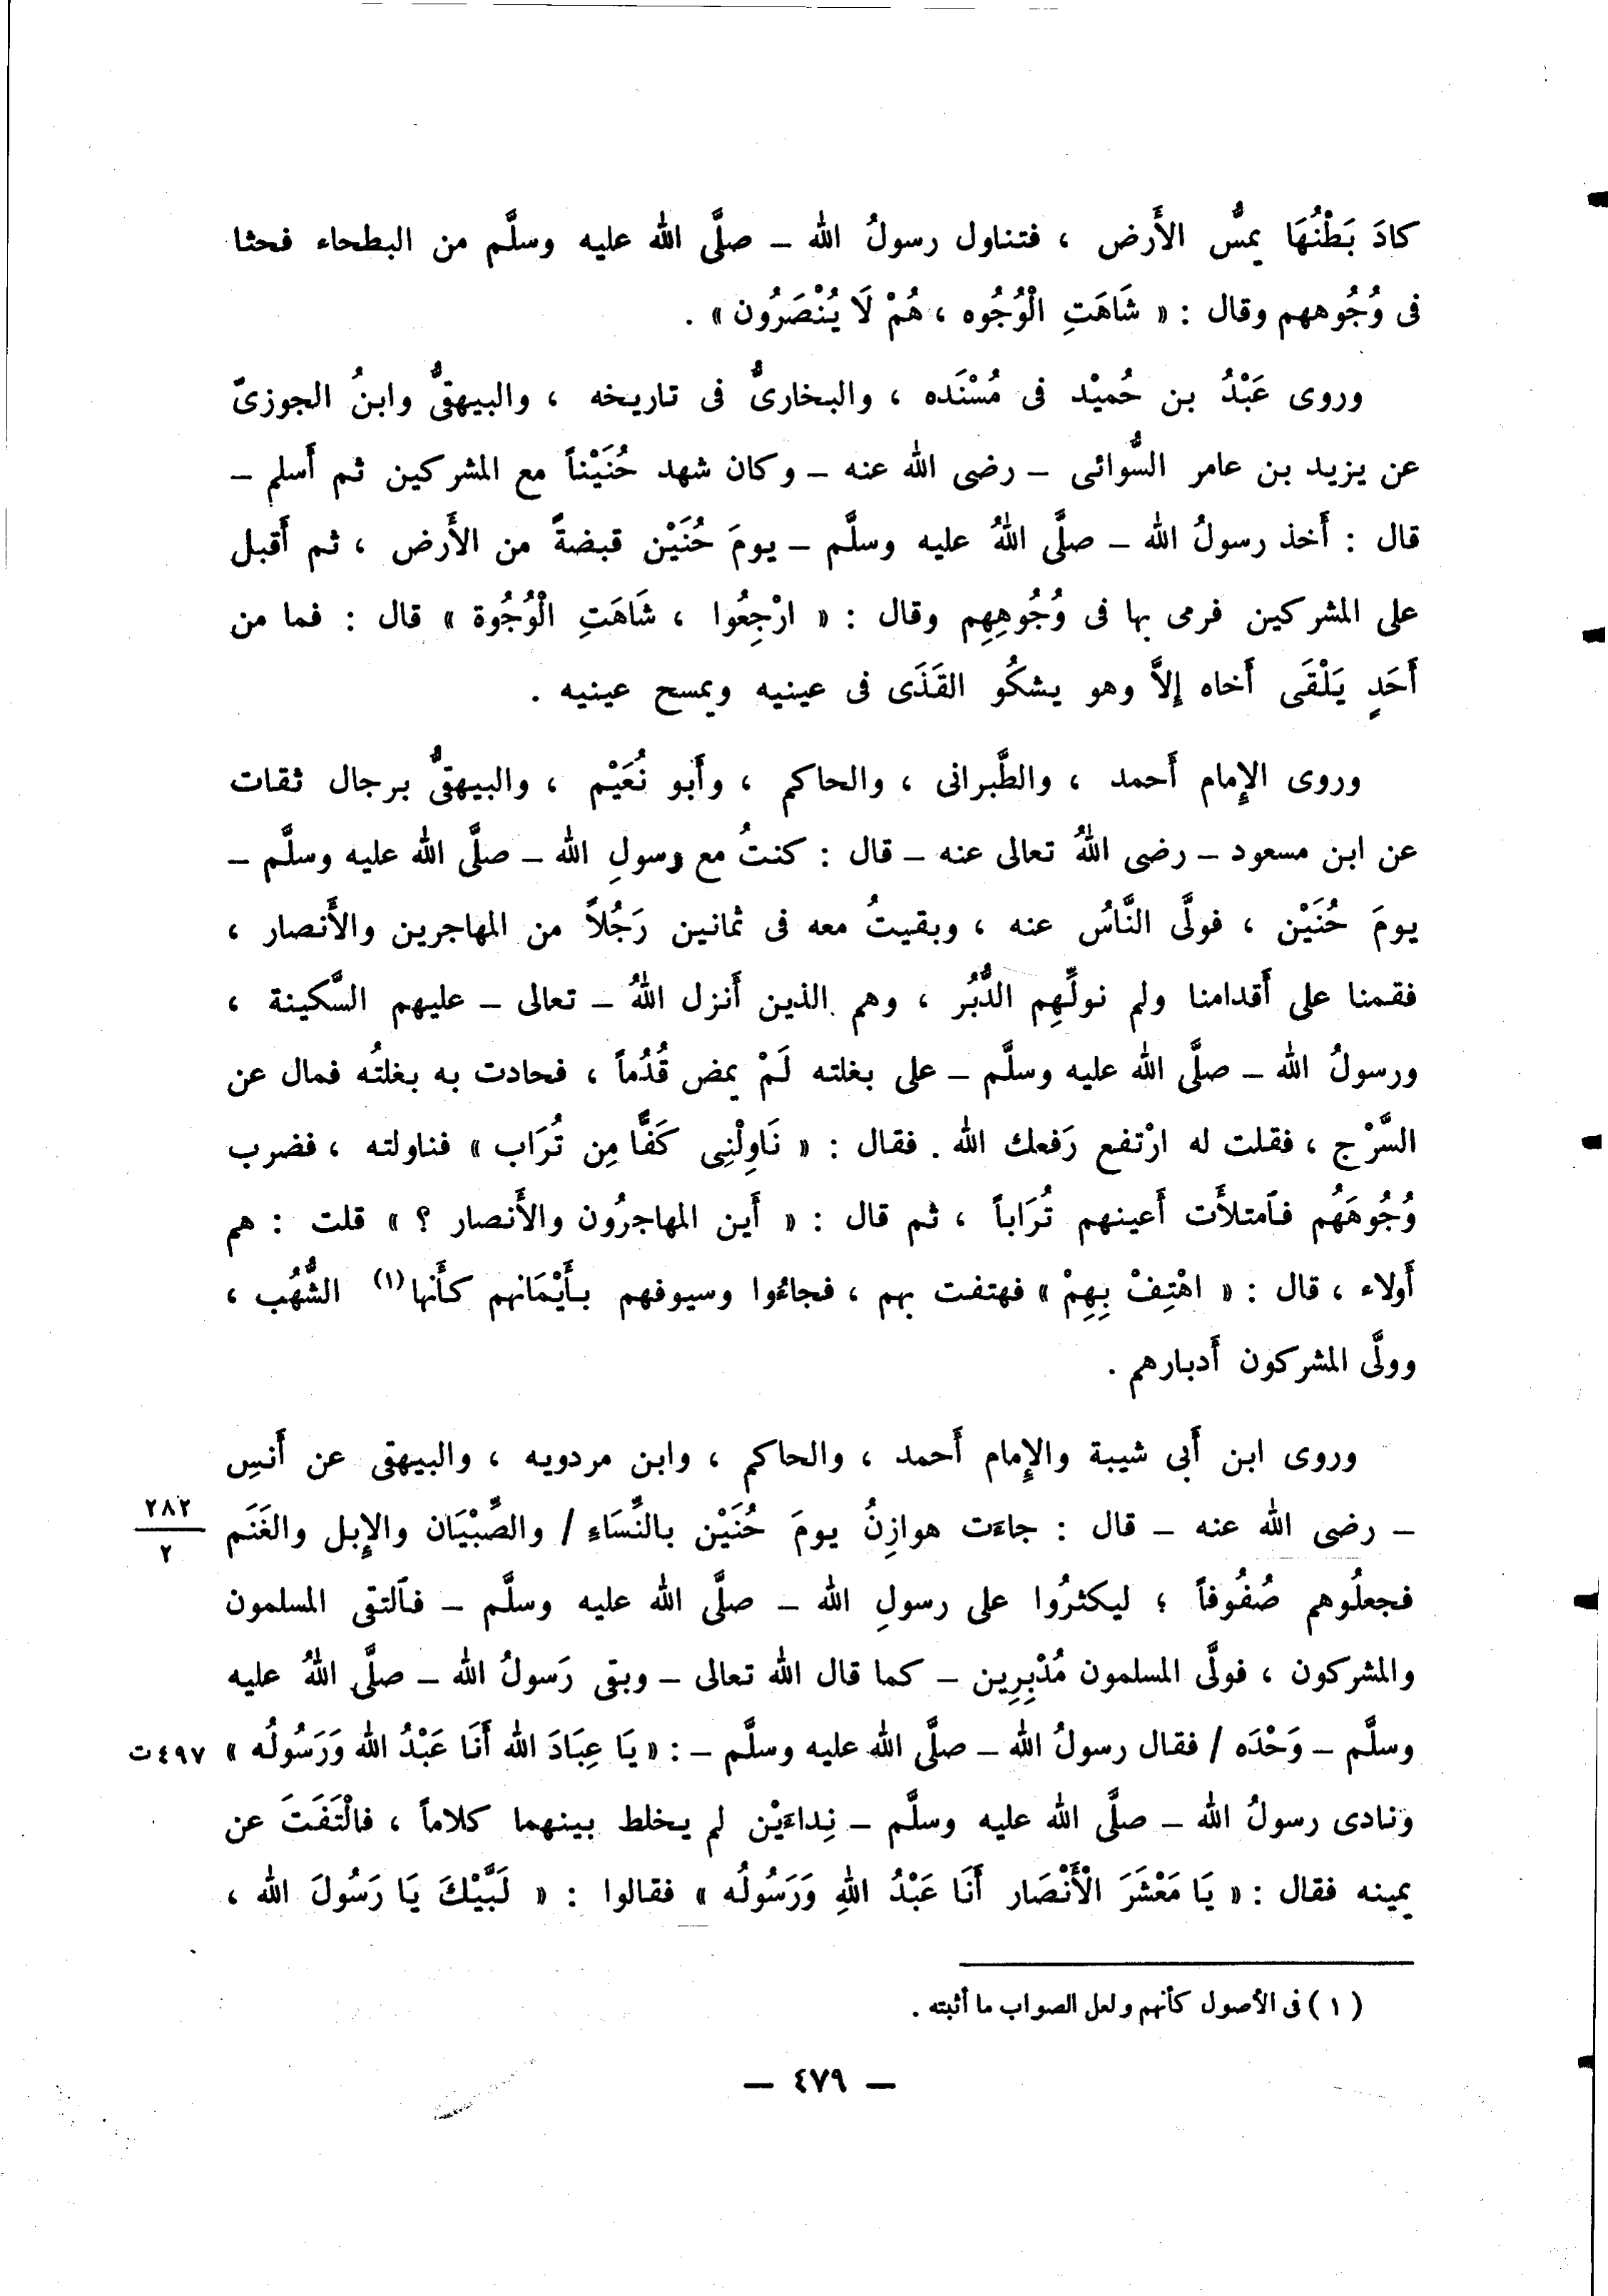 كادَ بَطْنُهَا يمسُّ الأَرض ، فتناول رسولُ الله – صلَّى الله عليه وسلَّم من البطحاء فحثا
فى وُجُوههم وقال : « شَاهَتِ الْوُجُوه ، هُمْ لَا يُنْصَرُون » .
وروى عَبْدُ بن حُميْد فى مُسْنَده ، والبخارىُّ فى تاريخه ، والبيهقىُّ وابنُ الجوزىّ
عن يزيد بن عامر السُّوائى – رضى الله عنه – وكان شهد حُنَيْناً مع المشركين ثم أَسلم –
قال : أَخذ رسولُ الله – صلَّى اللهُ عليه وسلَّم – يومَ حُنَيْن قبضةً من الأَرض ، ثم أَقبل
على المشركين فرمى بها فى وُجُوهِهِم وقال : « ارْجِعُوا ، شَاهَتِ الْوُجُوة » قال : فما من
أَحَدٍ يَلْقَى أَخاه إِلاَّ وهو يشكُو القَذَى فى عينيه ويمسح عينيه .
وروى الإِمام أَحمد ، والطَّبرانى ، والحاكم ، وأَبو نُعَيْم ، والبيهقىُّ برجال ثقات
عن ابن مسعود – رضى اللهُ تعالى عنه – قال : كنتُ مع رسولِ الله – صلَّى الله عليه وسلَّم –
يومَ حُنَيْن ، فولَّى النَّاسُ عنه ، وبقيتُ معه فى ثمانين رَجُلاً من المهاجرين والأَنصار ،
فقمنا على أَقدامنا ولم نولِّهِم الدُّبُر ، وهم الذين أَنزل اللهُ – تعالى – عليهم السَّكينة ،
ورسولُ الله – صلَّى الله عليه وسلَّم – على بغلته لَمْ يمض قُدُماً ، فحادت به بغلتُه فمال عن
السَّرْج ، فقلت له ارْتفع رَفعك الله . فقال : « نَاوِلْنِى كَفًّا مِن تُرَاب » فناولته ، فضرب
وُجُوهَهُم فٱمتلأَت أَعينهم تُرَاباً ، ثم قال : « أَين المهاجرُون والأَنصار ؟ » قلت : هم
أَولاء ، قال : « اهْتِفْ بِهِمْ » فهتفت بهم ، فجاءُوا وسيوفهم بأَيْمَانهم كأَنها(١) الشُّهُب ،
وولَّى المشركون أَدبارهم .
وروى ابن أَبى شيبة والإِمام أَحمد ، والحاكم ، وابن مردويه ، والبيهقى عن أَنسِ
– رضى الله عنه – قال : جاءَت هوازِنُ يومَ حُنَيْن بالنِّسَاءِ / والصِّبْيَان والإِبل والغَنَم ٢٨٢/٢
فجعلُوهم صُفُوفاً ؛ ليكثرُوا على رسولِ الله – صلَّى الله عليه وسلَّم – فٱلتقى المسلمون
والمشركون ، فولَّى المسلمون مُدْبِرِين – كما قال الله تعالى – وبقى رَسولُ الله – صلَّى اللهُ عليه
وسلَّم – وَحْدَه / فقال رسولُ الله – صلَّى الله عليه وسلَّم – : « يَا عِبَادَ الله أَنَا عَبْدُ الله وَرَسُولُه » ٤٩٧ت
وَنادى رسولُ الله – صلَّى الله عليه وسلَّم – نِداءَيْن لم يخلط بينهما كلاماً ، فالْتَفَتَ عن
يمينه فقال : « يَا مَعْشَرَ الْأَنْصَار أَنَا عَبْدُ اللهِ وَرَسُولُه » فقالوا : « لَبَّيْكَ يَا رَسُولَ الله ،
( ١ ) فى الأصول كأنهم ولعل الصواب ما أثبته .
– ٤٧٩ –